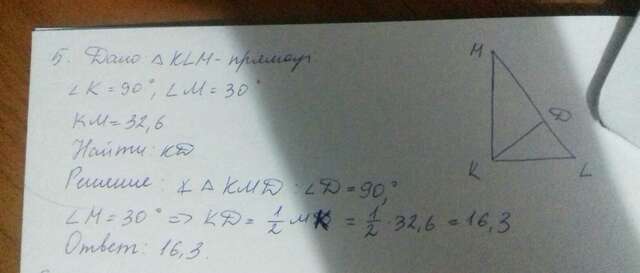 5. Дано △ KLM - прямоуг
∠K = 90°, ∠M = 30°
KM = 32,6
Найти: KD
M
D
K
L
Решение: △ KMD: ∠D = 90°,
∠M = 30° => KD = 1/2 MK = 1/2 · 32,6 = 16,3
Ответ: 16,3.